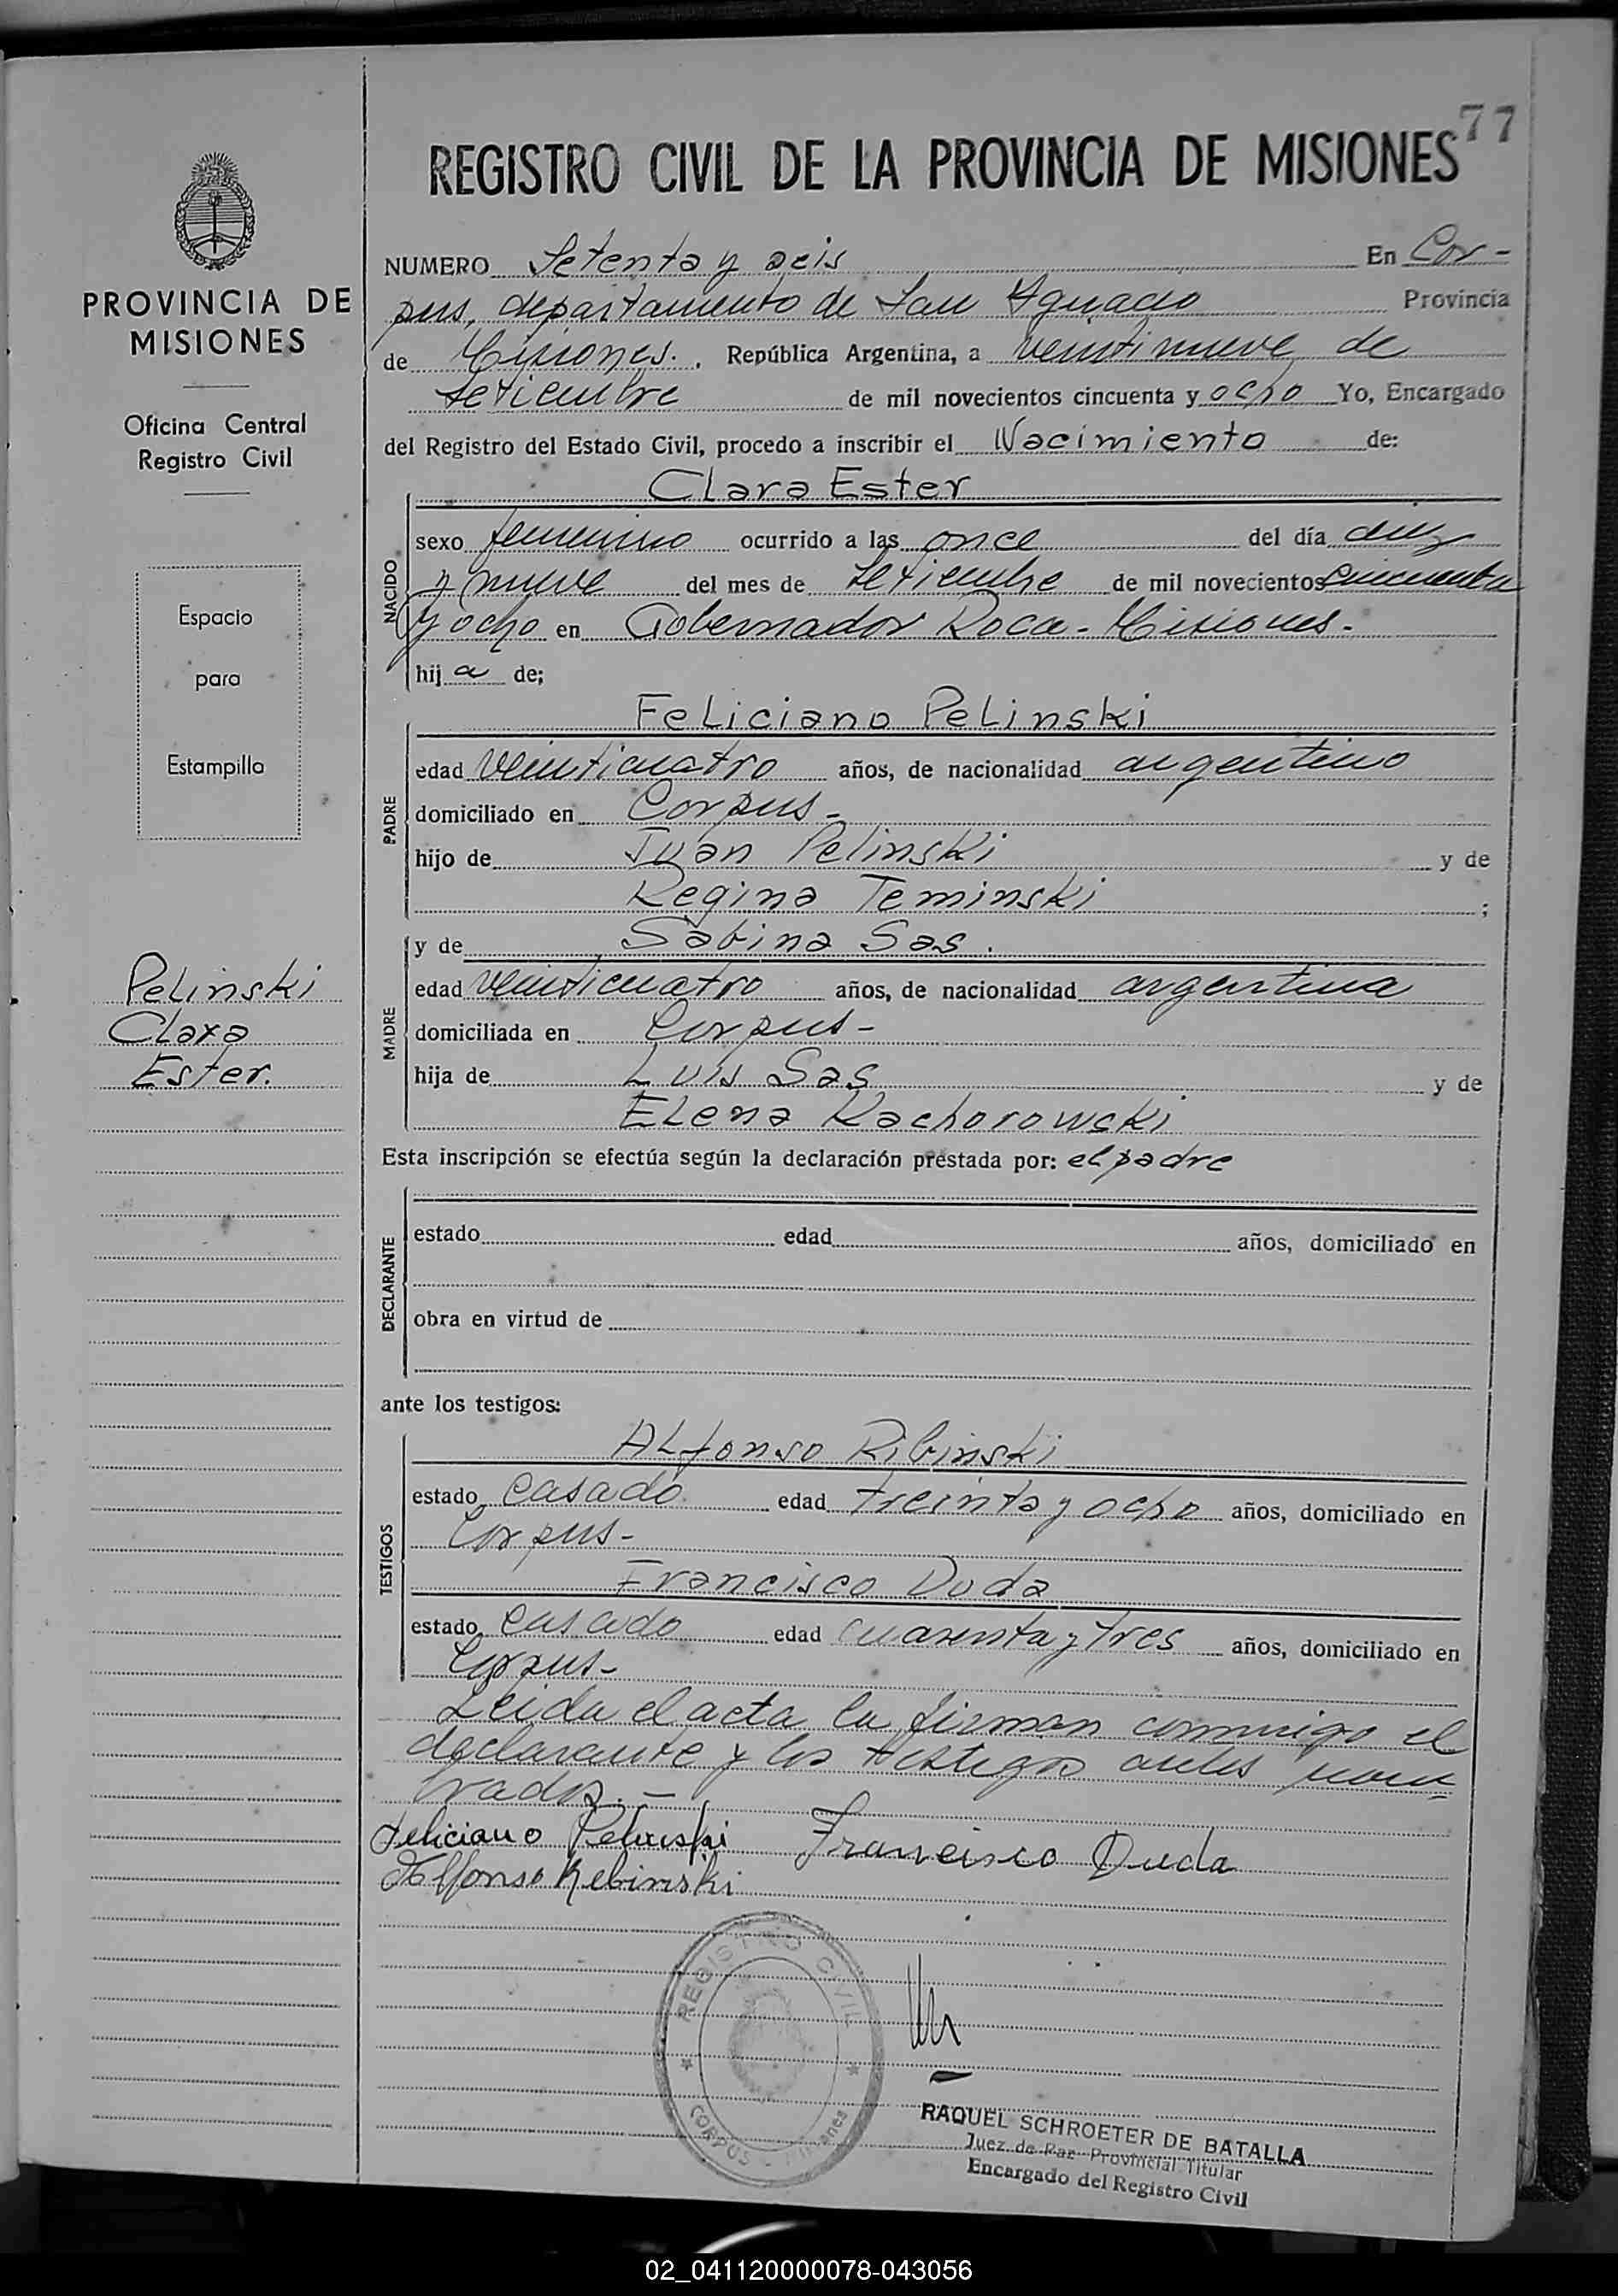 77
REGISTRO CIVIL DE LA PROVINCIA DE MISIONES
PROVINCIA DE
MISIONES
Oficina Central
Registro Civil
Espacio
para
Estampilla
Pelinski
Clara
Ester.
NUMERO Setenta y seis En Cor-
pus, departamento de San Ygnacio Provincia
de Misiones. , República Argentina, a veintinueve de
setiembre de mil novecientos cincuenta y ocho Yo, Encargado
del Registro del Estado Civil, procedo a inscribir el Nacimiento de:
Clara Ester
NACIDO
sexo femenino ocurrido a las once del día diez
y nueve del mes de setiembre de mil novecientos cincuenta
y ocho en Gobernador Roca - Misiones.-
hija de;
Feliciano Pelinski
PADRE
edad veinticuatro años, de nacionalidad argentino
domiciliado en Corpus.-
hijo de Juan Pelinski y de
Regina Teminski ;
y de Sabina Sas.
MADRE
edad veinticuatro años, de nacionalidad argentina
domiciliada en Corpus-
hija de Luis Sas y de
Elena Kachorowski
Esta inscripción se efectúa según la declaración prestada por: el padre
DECLARANTE
estado edad años, domiciliado en
obra en virtud de
ante los testigos:
Alfonso Ribinski
TESTIGOS
estado casado edad treinta y ocho años, domiciliado en
Corpus-
Francisco Duda
estado casado edad cuarenta y tres años, domiciliado en
Corpus-
Leida el acta la firman conmigo el
declarante y los testigos antes nom
brados.-
Feliciano Pelinski Francisco Duda
Alfonso Rebinski
REGISTRO CIVIL
CORPUS - Misiones
RAQUEL SCHROETER DE BATALLA
Juez de Paz Provincial Titular
Encargado del Registro Civil
02_041120000078-043056